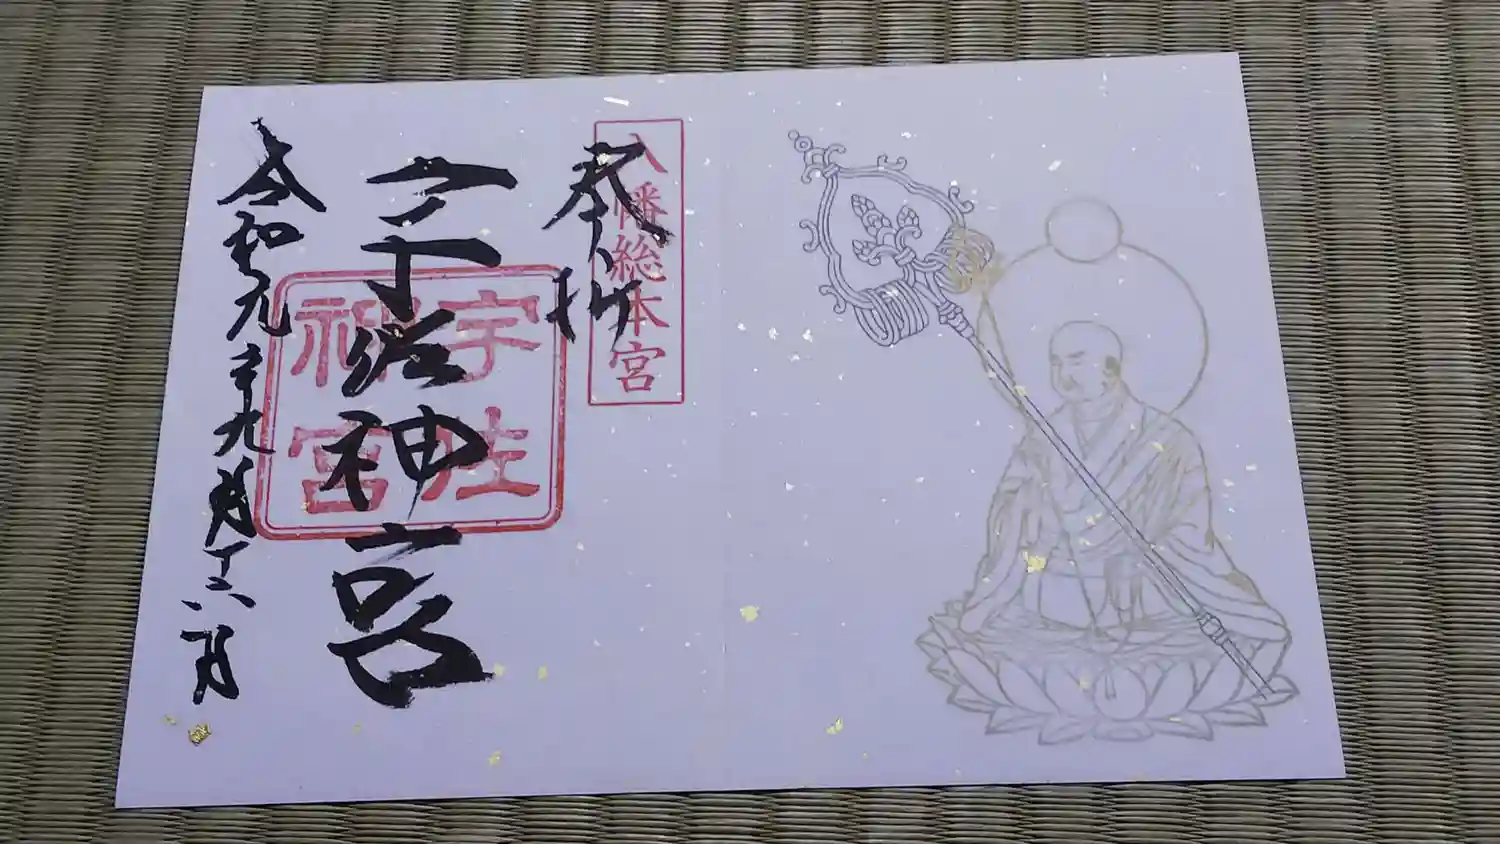 八幡総本宮
奉拝
宇佐神宮
宇佐
神宮
令和元年九月十六日